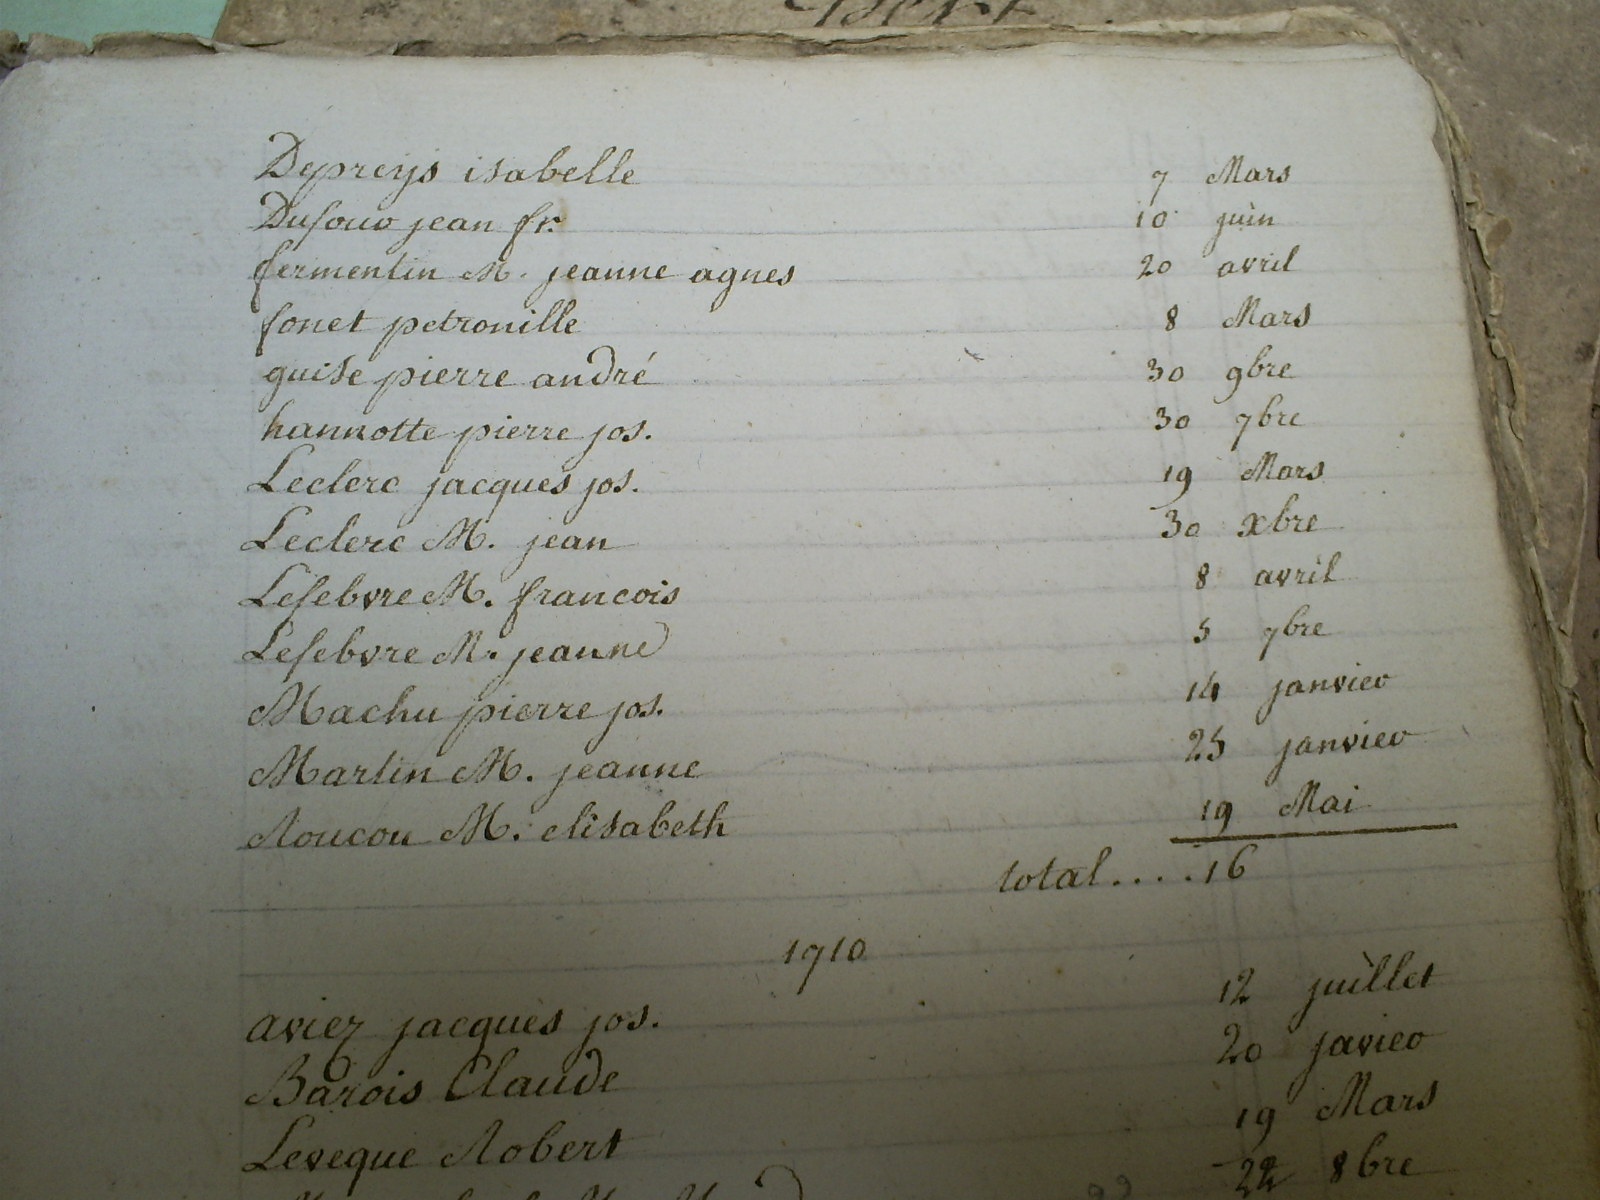 Depreys isabelle 7 Mars
Dufour jean fr. 10 juin
fermentin M. jeanne agnes 20 avril
fonet petronille 8 Mars
guise pierre andré 30 9bre
hannotte pierre jos. 30 7bre
Leclerc jacques jos. 19 Mars
Leclerc M. jean 30 xbre
Lefebvre M. francois 8 avril
Lefebvre M. jeanne 5 7bre
Machu pierre jos. 14 janvier
Martin M. jeanne 25 janvier
Roucou M. elisabeth 19 Mai
total....16
1710
aviez jacques jos. 12 juillet
Barois Claude 20 javier
Leveque Robert 19 Mars
22 8bre